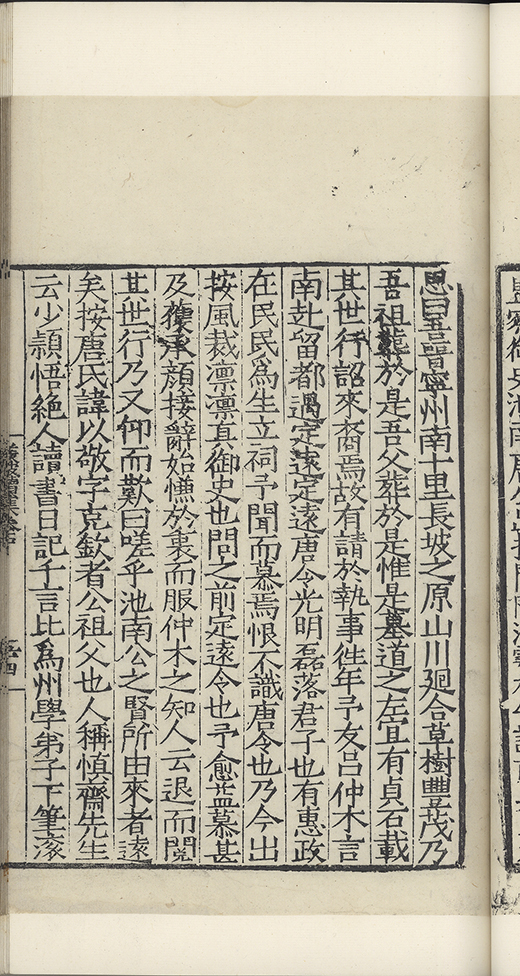 思曰吾晋寧州南十里長坡之原山川迴合草樹豐茂乃
吾祖葬於是吾父葬於是惟是墓道之左宜有貞石載
其世行詔來裔焉故有請於執事徃年予友呂仲木言
南赴留都過定遠定遠唐令光明磊落君子也有惠政
在民民爲生立祠予聞而慕焉恨不識唐令也乃今出
按風裁凛凛真御史也問之前定遠令也予愈益慕甚
及獲承顔接辭始憮於裏而服仲木之知人云退而閲
其世行乃又仰而歎曰嗟乎池南公之賢所由來者遠
矣按唐氏諱以敬字克欽者公祖父也人稱慎齋先生
云少頴悟絶人讀書日記千言比爲州學弟子下筆滾